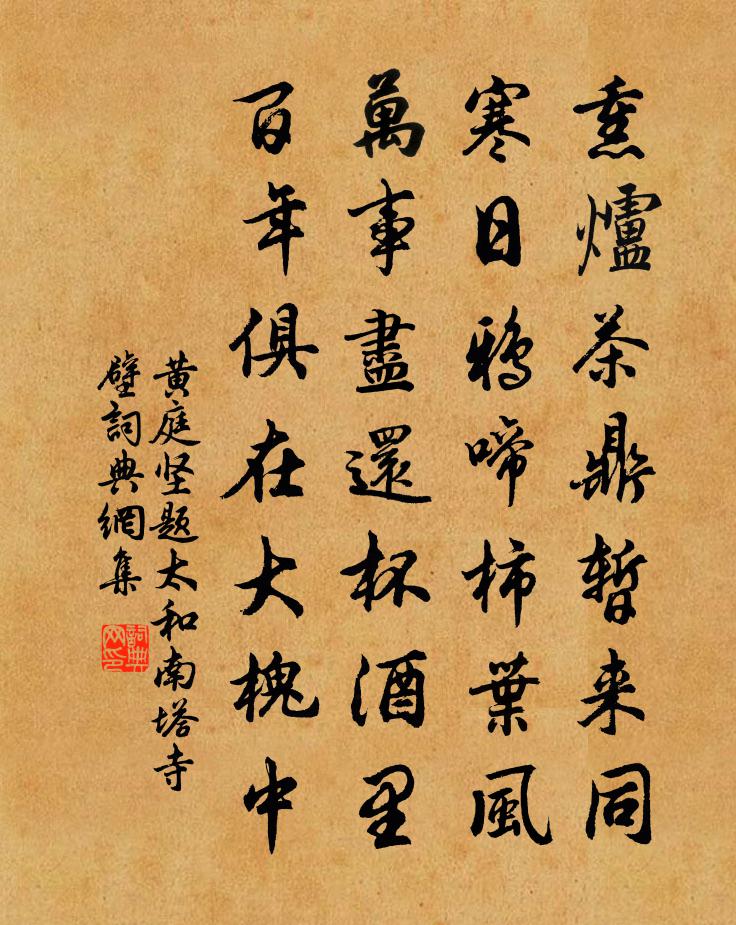 熏爐茶鼎暫来同
寒日鴉啼柿葉風
萬事盡還杯酒里
百年俱在大槐中
黄庭坚题太和南塔寺
壁詞典網集
詞典
网印